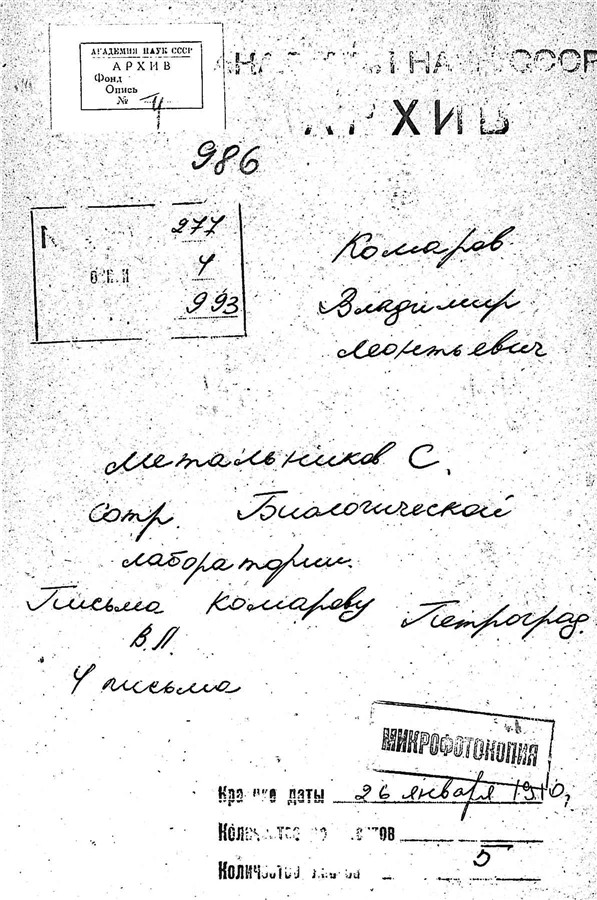 АКАДЕМИЯ НАУК СССР
АРХИВ
Фонд
Опись
№ 4
СССР
АРХИВ
986
277
4
993
Комаров
Владимир
Леонтьевич
Метальников С.
Сотр. Биологической
лаборатории.
Письма Комарову Петроград.
В.Л.
4 письма
МИКРОФОТОКОПИЯ
Крайние даты 26 января 1910,
Количество
5
Количество